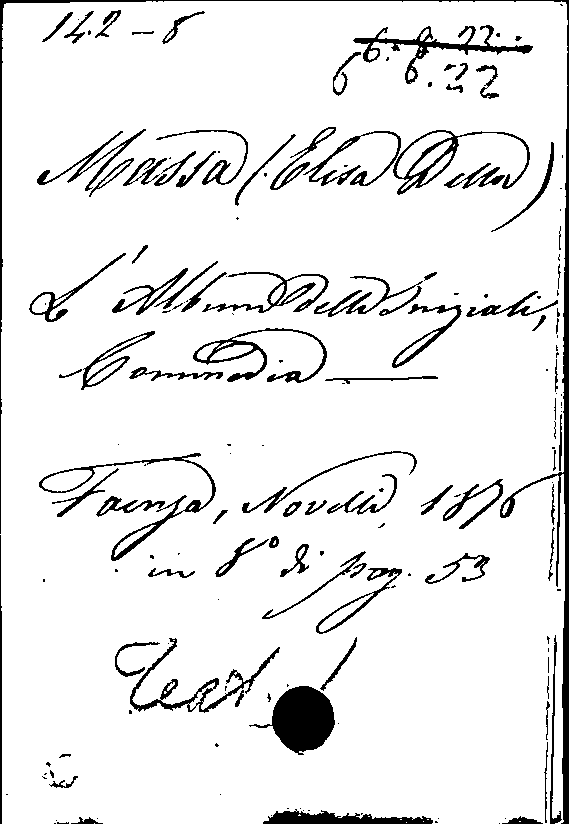 142-8
6. 8. 22.
6 6.22
Massa (Elisa Della)
L'Album delle Iniziali,
Commedia —
Faenza, Novelli, 1876
in 8º di pag. 53
Teat.